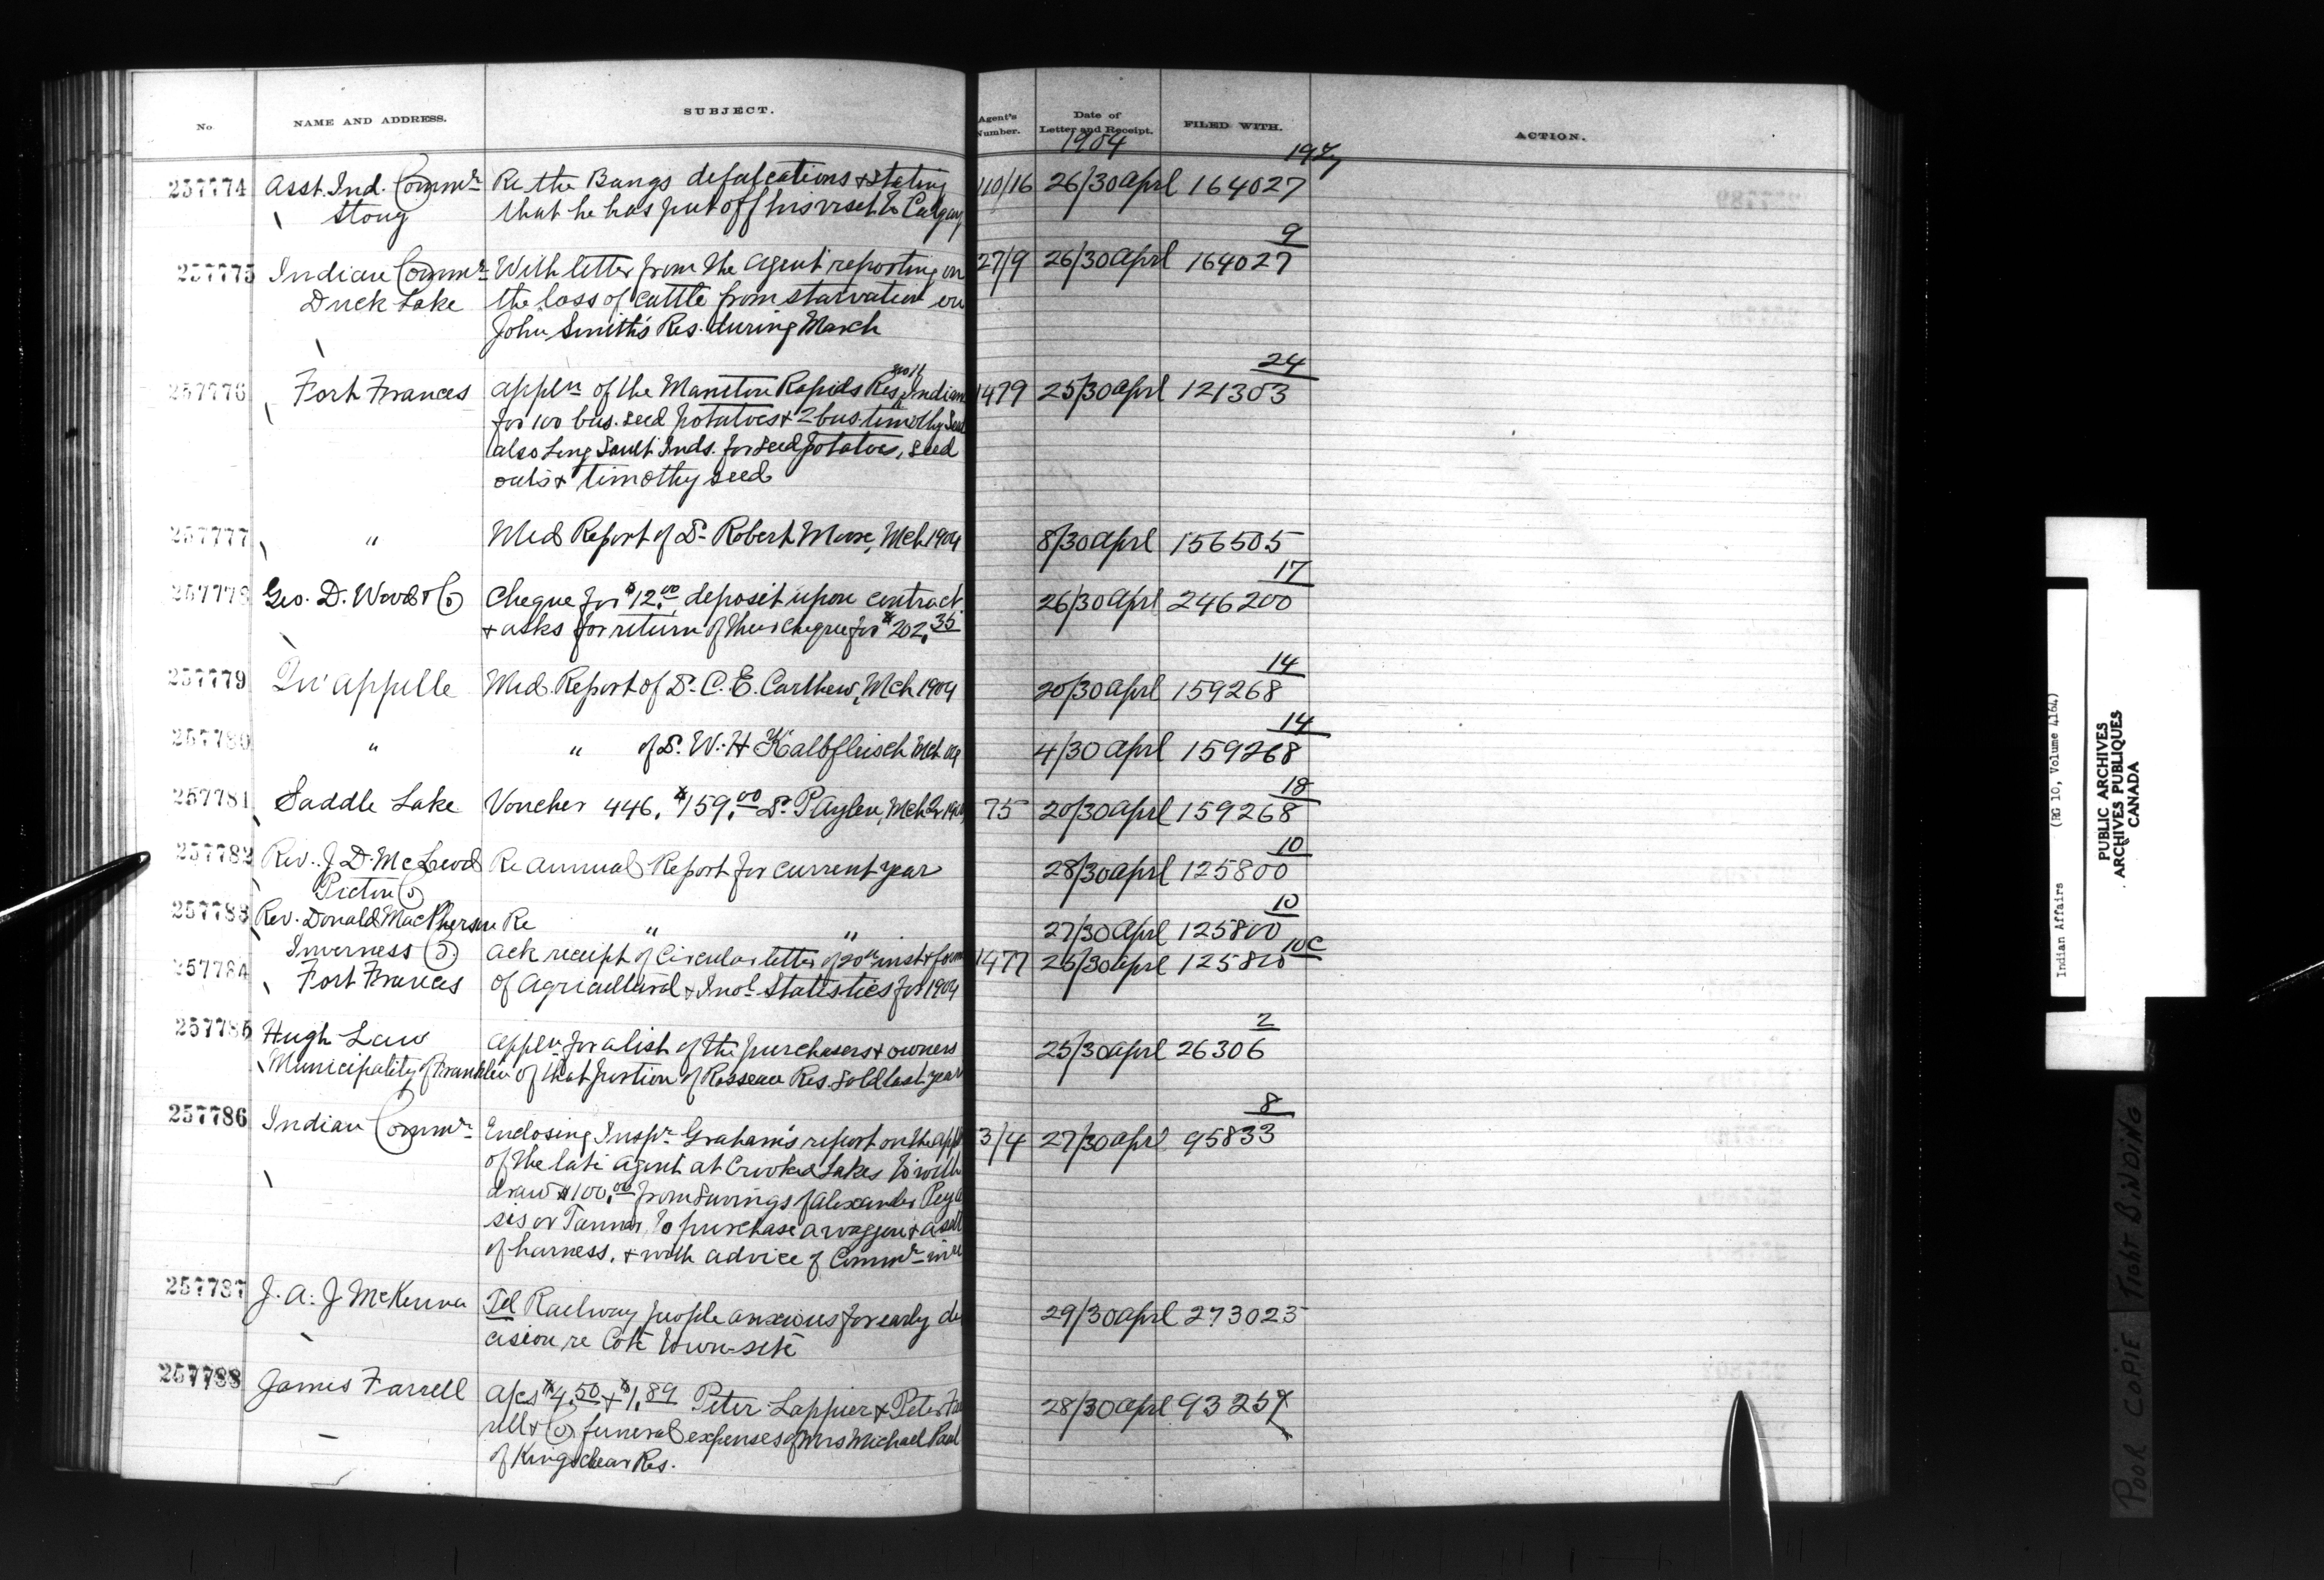 No. NAME AND ADDRESS. SUBJECT. Agent's Number. Date of Letter and Receipt. FILED WITH. ACTION.
1904
257774 Asst. Ind. Commr Re the Bangs defalcations & stating 110/16 26/30 Aprl 164027
Stony that he has put off his visit to Calgary
9
257775 Indian Commr With letter from the Agent reporting on 27/9 26/30 April 164027
Duck Lake the loss of cattle from starvation on
John Smith's Res. during March
24
257776 Fort Frances Appln of the Manitou Rapids Res. Indians 1479 25/30 Aprl 121303
for 100 bus. seed potatoes & 2 bus. timothy seed
also Long Sault Inds. for seed potatoes, seed
oats & timothy seed
257777 " Med Report of Dr Robert Moore, Mch 1904 8/30 Aprl 156505
17
257778 Geo. D. Wood & Co Cheque for $12.00 deposit upon contract 26/30 Aprl 246200
& asks for return of their cheque for $202.35
14
257779 Qu'appelle Med. Report of Dr. C. E. Carthew, Mch 1904 20/30 Aprl 159268
14
257780 " " of Dr. W. H Kalbfleisch Mch 4/30 Aprl 159268
18
257781 Saddle Lake Voucher 446. $159.00 Dr. P Aylen, Mch 75 20/30 Aprl 159268
10
257782 Rev. J. D. McLeod Re annual Report for current year 28/30 Aprl 125800
Pictou Co
10
257783 Rev. Donald MacPherson Re " " 27/30 Aprl 125800
Inverness Co.
10C
257784 Fort Frances Ack receipt of Circular letter of 20th inst & form 1477 25/30 Aprl 125800
of Agricultural & Indl Statistics for 1904
2
257785 Hugh Law Appln for a list of the purchasers & owners 25/30 Aprl 26306
Municipality of Franklin of that portion of Rosseau Res. sold last year
8
257786 Indian Commr Enclosing Inspr Graham's report on the appl 3/4 27/30 Apr 95833
of the late Agent at Crooked Lakes to with
draw $100.00 from savings of Alexander
sis or Tanner, to purchase a waggon & a sett
of harness, & with advice of Commr in re
257787 J. A. J McKenna Tel Railway people anxious for early de 29/30 Aprl 273023
cision re Coté town-site
257788 James Farrell $4.50 & $1.89 Peter Lappier & Peter Far 28/30 Aprl 93259
rell & Co funeral expenses of Mrs Michael Paul
of Kingsclear Res.
Indian Affairs (RG 10, Volume 4164)
PUBLIC ARCHIVES
ARCHIVES PUBLIQUES
CANADA
POOR COPIE TIGHT BINDING